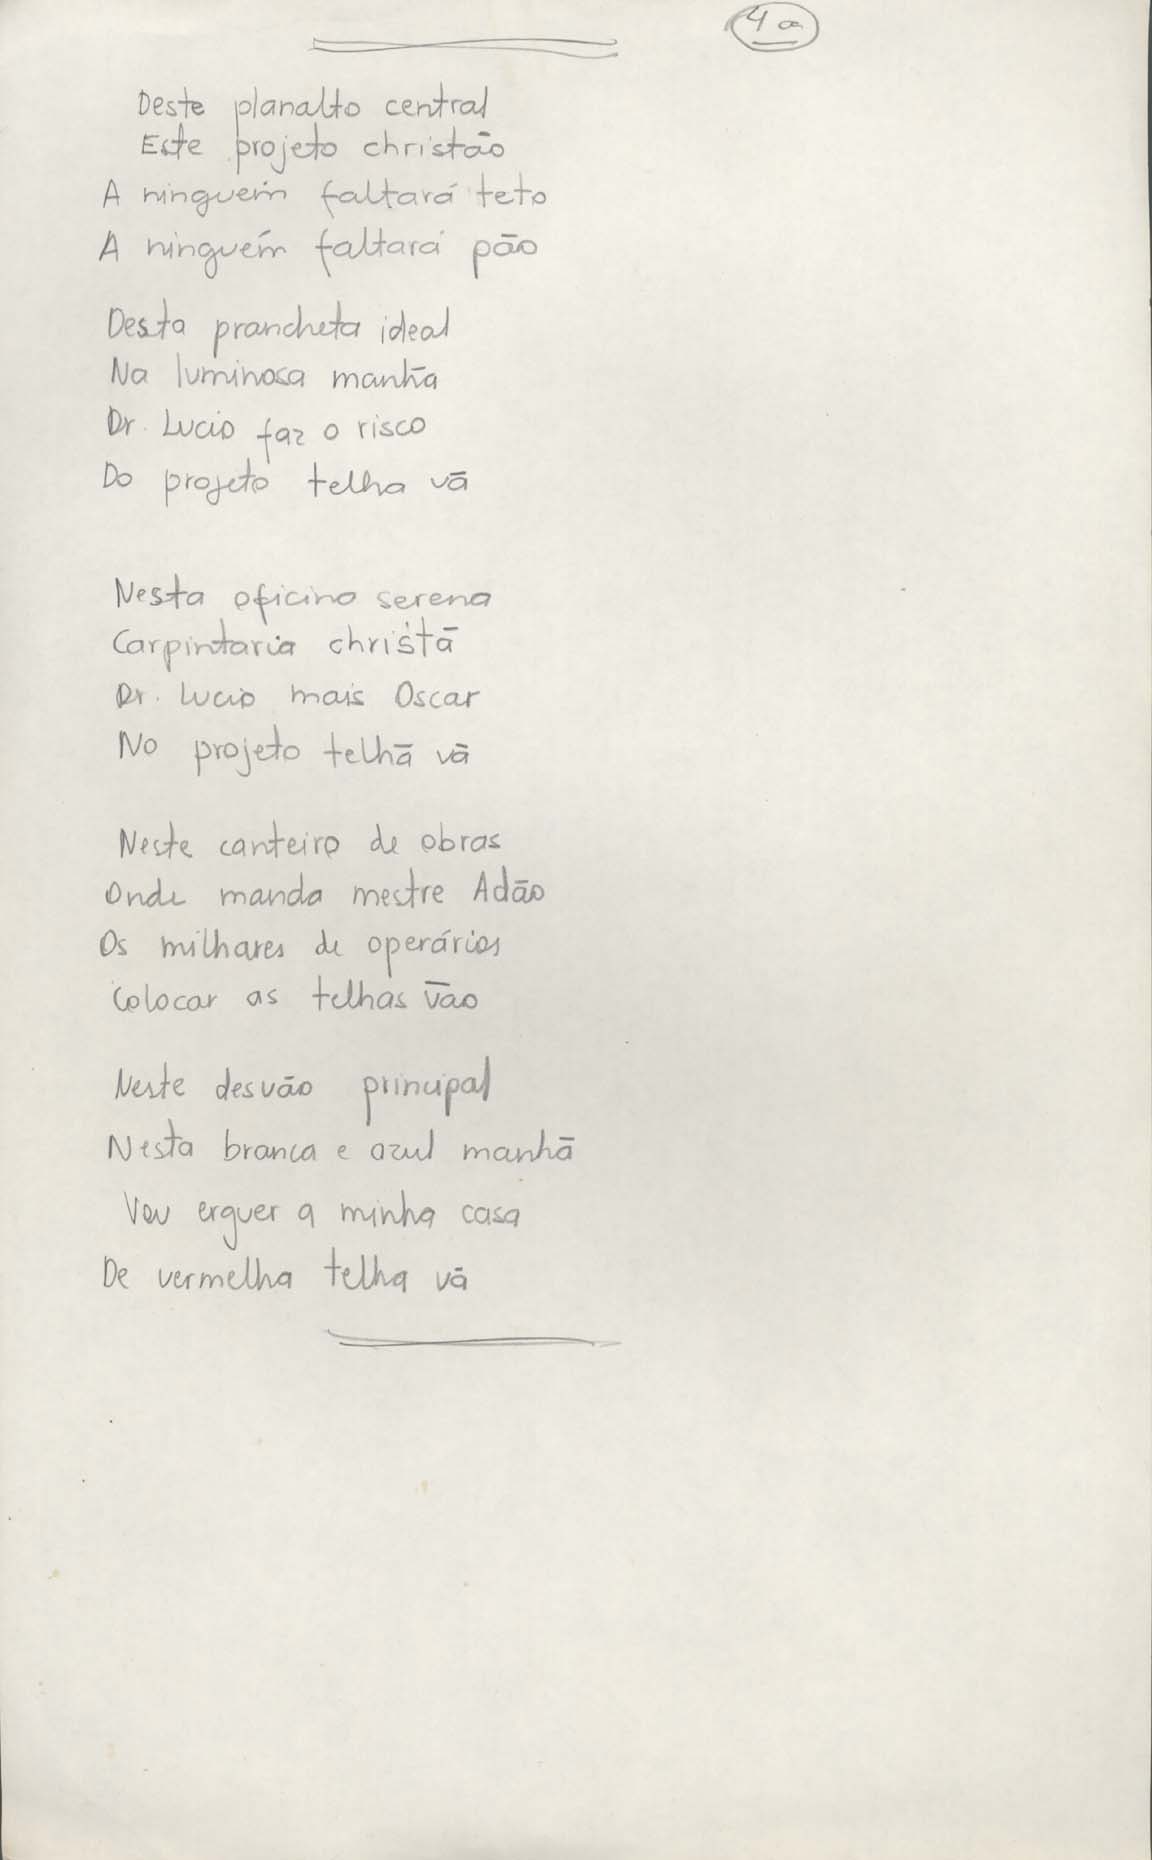 4a
Deste planalto central
Este projeto christão
A ninguém faltará teto
A ninguém faltará pão
Desta prancheta ideal
Na luminosa manhã
Dr. Lucio faz o risco
Do projeto telha vã
Nesta oficina serena
Carpintaria christã
Dr. Lucio mais Oscar
No projeto telhã vã
Neste canteiro de obras
Onde manda mestre Adão
Os milhares de operários
Colocar as telhas vão
Neste desvão principal
Nesta branca e azul manhã
Vou erguer a minha casa
De vermelha telha vã